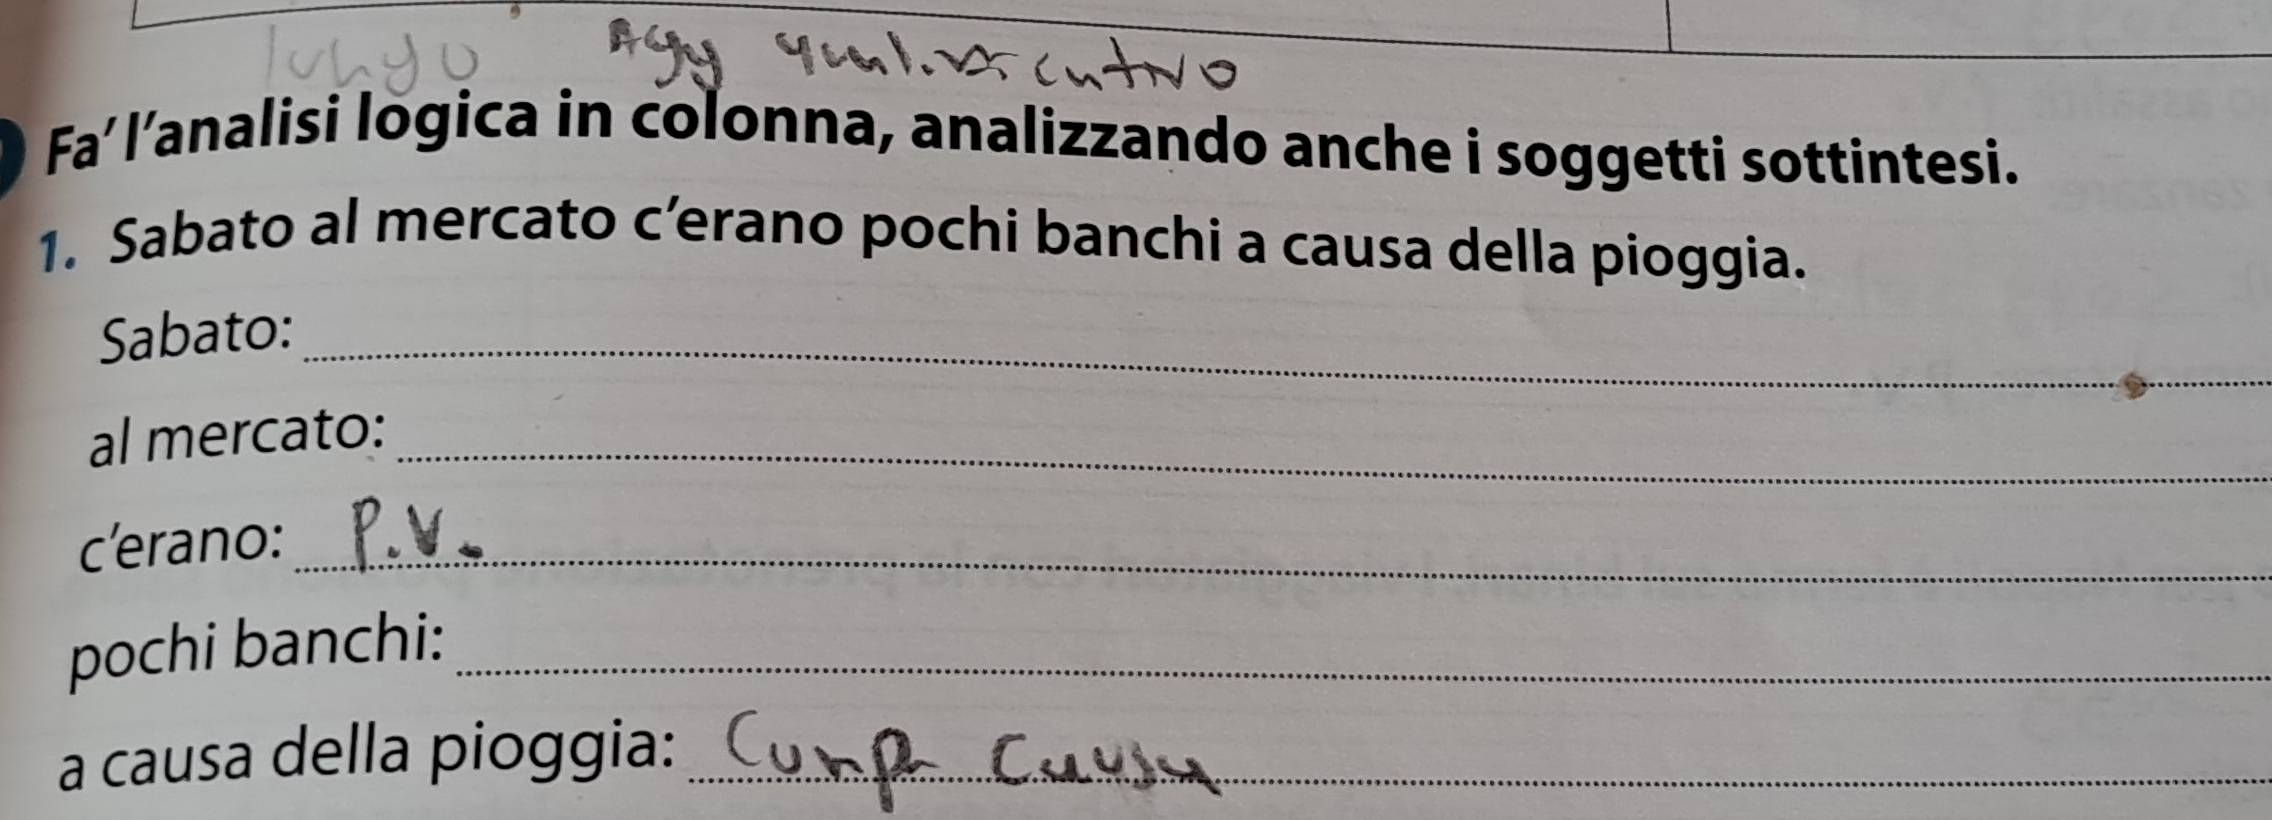 luogo Agg qualificativo
Fa' l'analisi logica in colonna, analizzando anche i soggetti sottintesi.
1. Sabato al mercato c'erano pochi banchi a causa della pioggia.
Sabato:
al mercato:
c'erano: P.V.
pochi banchi:
a causa della pioggia: Comp Causa